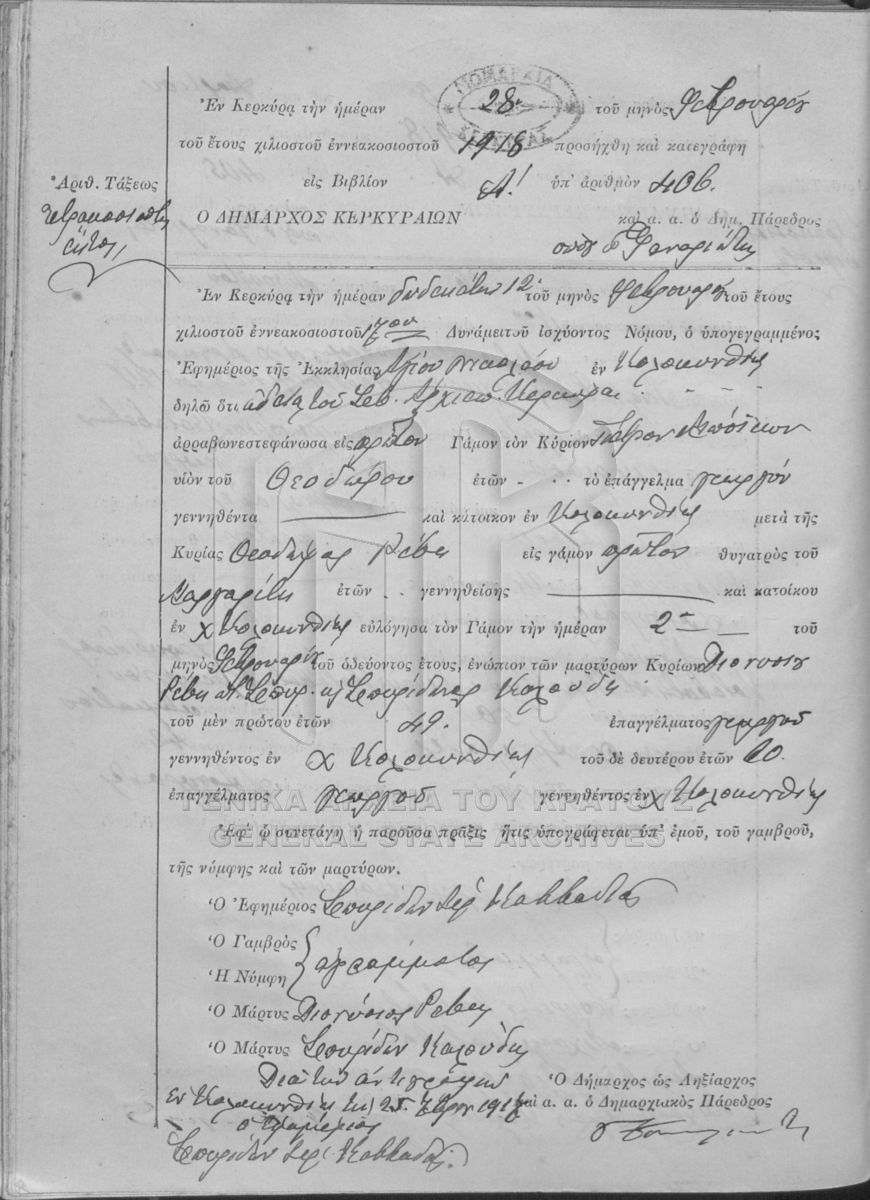 ΝΟΜΑΡΧΙΑ
ΚΕΡΚΥΡΑΣ
Ἐν Κερκύρᾳ τὴν ἡμέραν 28 τοῦ μηνὸς Φεβρουαρίου
τοῦ ἔτους χιλιοστοῦ ἐννεακοσιοστοῦ 1918 προσήχθη καὶ κατεγράφη
εἰς Βιβλίον Α! ὑπ' ἀριθμὸν 406.
Ἀριθ. Τάξεως
Ο ΔΗΜΑΡΧΟΣ ΚΕΡΚΥΡΑΙΩΝ καὶ α. α. ὁ Δημ. Πάρεδρος
Ἐν Κερκύρᾳ τὴν ἡμέραν δωδεκάτην 12 τοῦ μηνὸς Φεβρουαρίου τοῦ ἔτους
χιλιοστοῦ ἐννεακοσιοστοῦ 17ου Δυνάμει τοῦ ἰσχύοντος Νόμου, ὁ ὑπογεγραμμένος
Ἐφημέριος τῆς Ἐκκλησίας Ἁγίου Νικολάου ἐν Κολοκυνθίῳ
δηλῶ ὅτι ἀδείᾳ τοῦ Σεβ. Ἀρχιεπ. Κερκύρας
ἀρραβωνεστεφάνωσα εἰς πρῶτον Γάμον τὸν Κύριον
υἱὸν τοῦ Θεοδώρου ἐτῶν - τὸ ἐπάγγελμα γεωργόν
γεννηθέντα — καὶ κάτοικον ἐν Κολοκυνθίῳ μετὰ τῆς
Κυρίας Θεοδώρας Ρέβη εἰς γάμον πρῶτον θυγατρὸς τοῦ
Μαργαρίτη ἐτῶν - γεννηθείσης — καὶ κατοίκου
ἐν χ Κολοκυνθίῳ εὐλόγησα τὸν Γάμον τὴν ἡμέραν 2 — τοῦ
μηνὸς Φεβρουαρίου τοῦ ὁδεύοντος ἔτους, ἐνώπιον τῶν μαρτύρων Κυρίων Διονυσίου
Ρέβη Σπυρ. Σπυρίδωνος Καλούδη
τοῦ μὲν πρώτου ἐτῶν 49. ἐπαγγέλματος γεωργοῦ
γεννηθέντος ἐν χ Κολοκυνθίῳ τοῦ δὲ δευτέρου ἐτῶν
ἐπαγγέλματος γεωργοῦ γεννηθέντος ἐν χ Κολοκυνθίῳ
ΓΕΝΙΚΑ ΑΡΧΕΙΑ ΤΟΥ ΚΡΑΤΟΥΣ
GENERAL STATE ARCHIVES
Ἐφ' ᾧ συνετάγη ἡ παροῦσα πρᾶξις ἥτις ὑπογράφεται ὑπ' ἐμοῦ, τοῦ γαμβροῦ,
τῆς νύμφης καὶ τῶν μαρτύρων.
Ὁ Ἐφημέριος Σπυρίδων Ἱερ. Καββαδίας
Ὁ Γαμβρὸς
ἀγράμματοι
Ἡ Νύμφη
Ὁ Μάρτυς Διονύσιος Ρέβης
Ὁ Μάρτυς Σπυρίδων Καλούδης
Διὰ τὴν ἀντιγραφήν
Ὁ Δήμαρχος ὡς Ληξίαρχος
Ἐν Κολοκυνθίῳ τῇ 25
καὶ α. α. ὁ Δημαρχιακὸς Πάρεδρος
ὁ Ἐφημέριος
Σπυρίδων Ἱερ. Καββαδίας